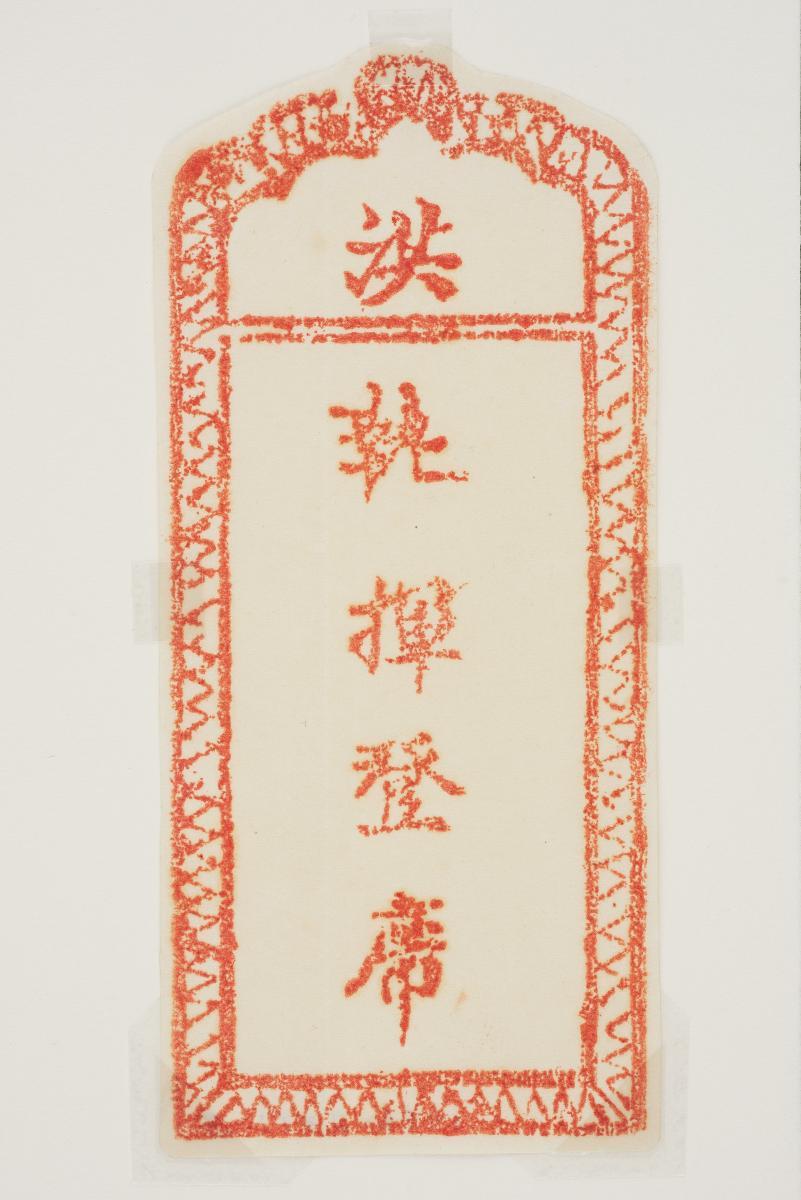 洪
揮登席